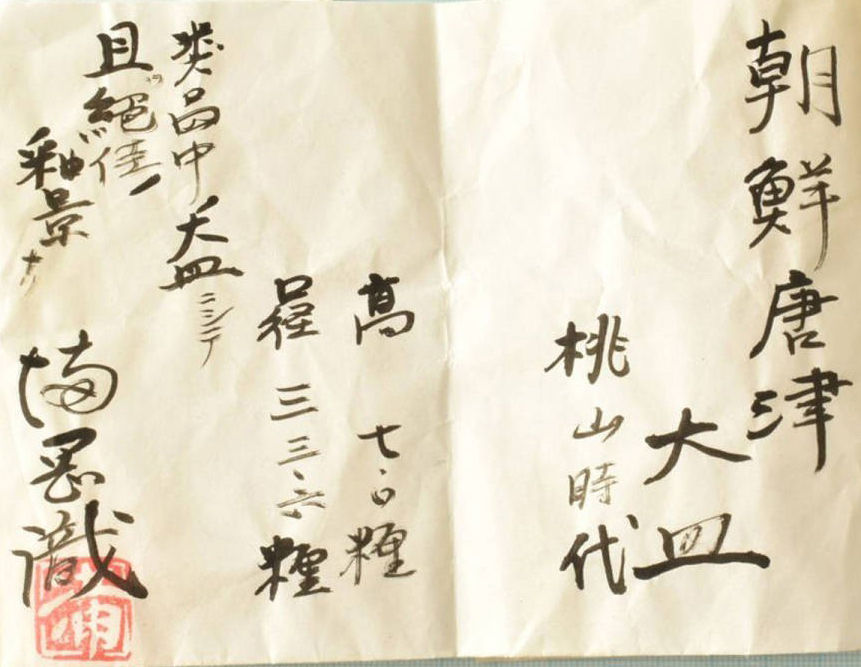 朝鮮唐津
大皿
桃山時代
高 七.〇糎
口径 三三.六糎
類品中 大皿ニシテ
且ツ絶佳ノ
釉景ナリ
識